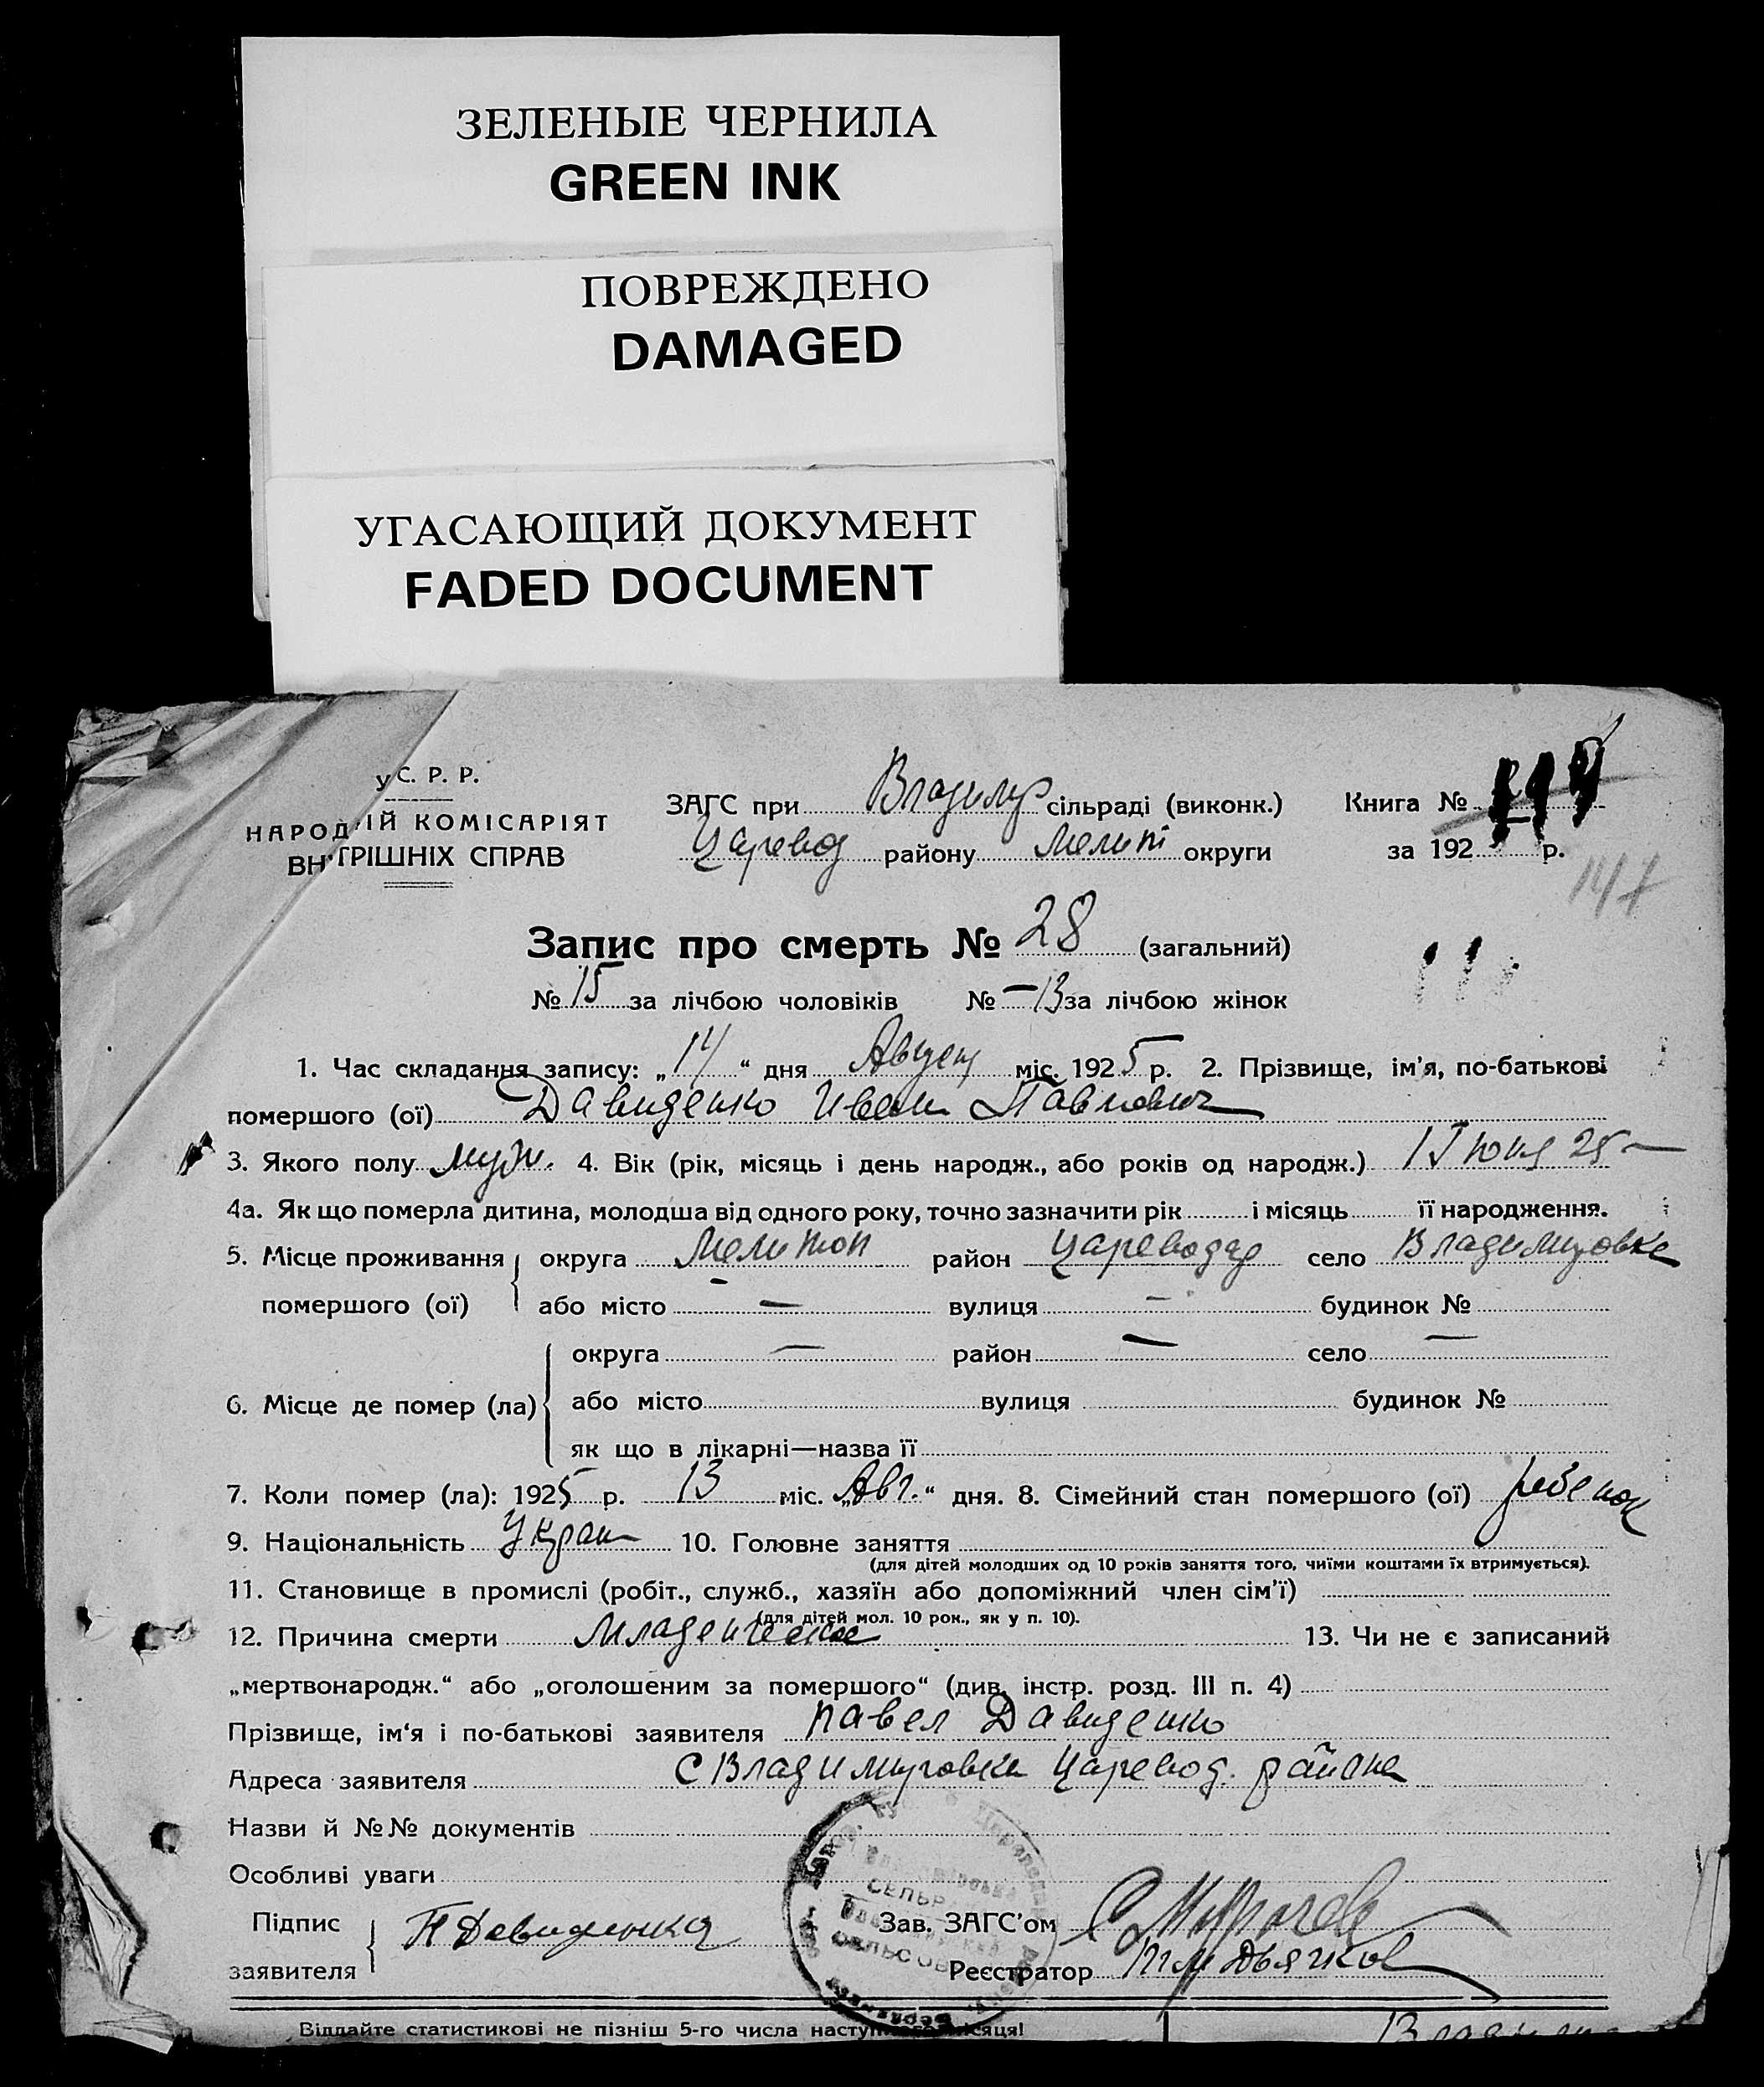 ЗЕЛЕНЫЕ ЧЕРНИЛА
GREEN INK
ПОВРЕЖДЕНО
DAMAGED
УГАСАЮЩИЙ ДОКУМЕНТ
FADED DOCUMENT
У С. Р. Р.
НАРОД ІЙ КОМІСАРІЯТ
ВН ТРІШНІХ СПРАВ
ЗАГС при Владимир сільраді (виконк.) Книга №
Царевод району Мелит округи за 192 р.
147
Запис про смерть № 28 (загальний)
№ 15 за лічбою чоловіків № — 13 за лічбою жінок
1. Час складання запису: „14“ дня Август міс. 1925 р. 2. Прізвище, ім’я, по-батькові
помершого (ої) Давиденко Иван Павлович
3. Якого полу муж. 4. Вік (рік, місяць і день народж., або років од народж.) 1 Июня 25 —
4а. Як що померла дитина, молодша від одного року, точно зазначити рік і місяць її народження.
5. Місце проживання округа Мелитоп район Цареводар село Владимировке
помершого (ої) або місто — вулиця — будинок №
округа — район — село —
6. Місце де помер (ла) або місто вулиця будинок №
як що в лікарні—назва її
7. Коли помер (ла): 1925 р. 13 міс. „Авг.“ дня. 8. Сімейний стан помершого (ої) ребенок
9. Національність Украин 10. Головне заняття
(для дітей молодших од 10 років заняття того, чиїми коштами їх втримується).
11. Становище в промислі (робіт., служб., хазяїн або допоміжний член сім’ї)
(для дітей мол. 10 рок., як у п. 10).
12. Причина смерти Младенческое 13. Чи не є записаний
„мертвонародж.“ або „оголошеним за помершого“ (див. інстр. розд. III п. 4)
Прізвище, ім‘я і по-батькові заявителя Павел Давиденко
Адреса заявителя С Владимировка Царевод. района
Назви й №№ документів
Особливі уваги
СЕЛЬР
СЕЛЬСОВ
Підпис П Давиденко Зав. ЗАГС’ом
заявителя Реєстратор Дьячков
Віддайте статистикові не пізніш 5-го числа наступного місяця!